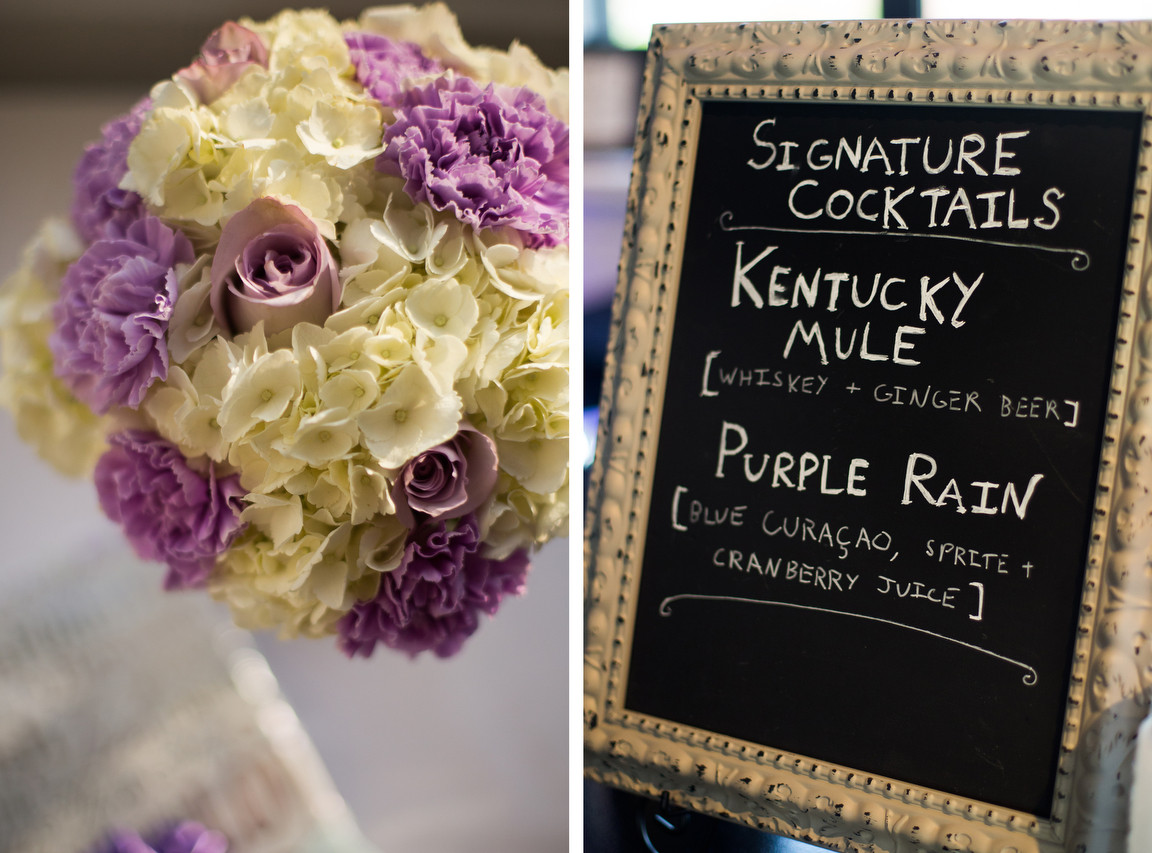 SIGNATURE
COCKTAILS
KENTUCKY
MULE
[WHISKEY + GINGER BEER]
PURPLE RAIN
[BLUE CURAÇAO, SPRITE +
CRANBERRY JUICE]